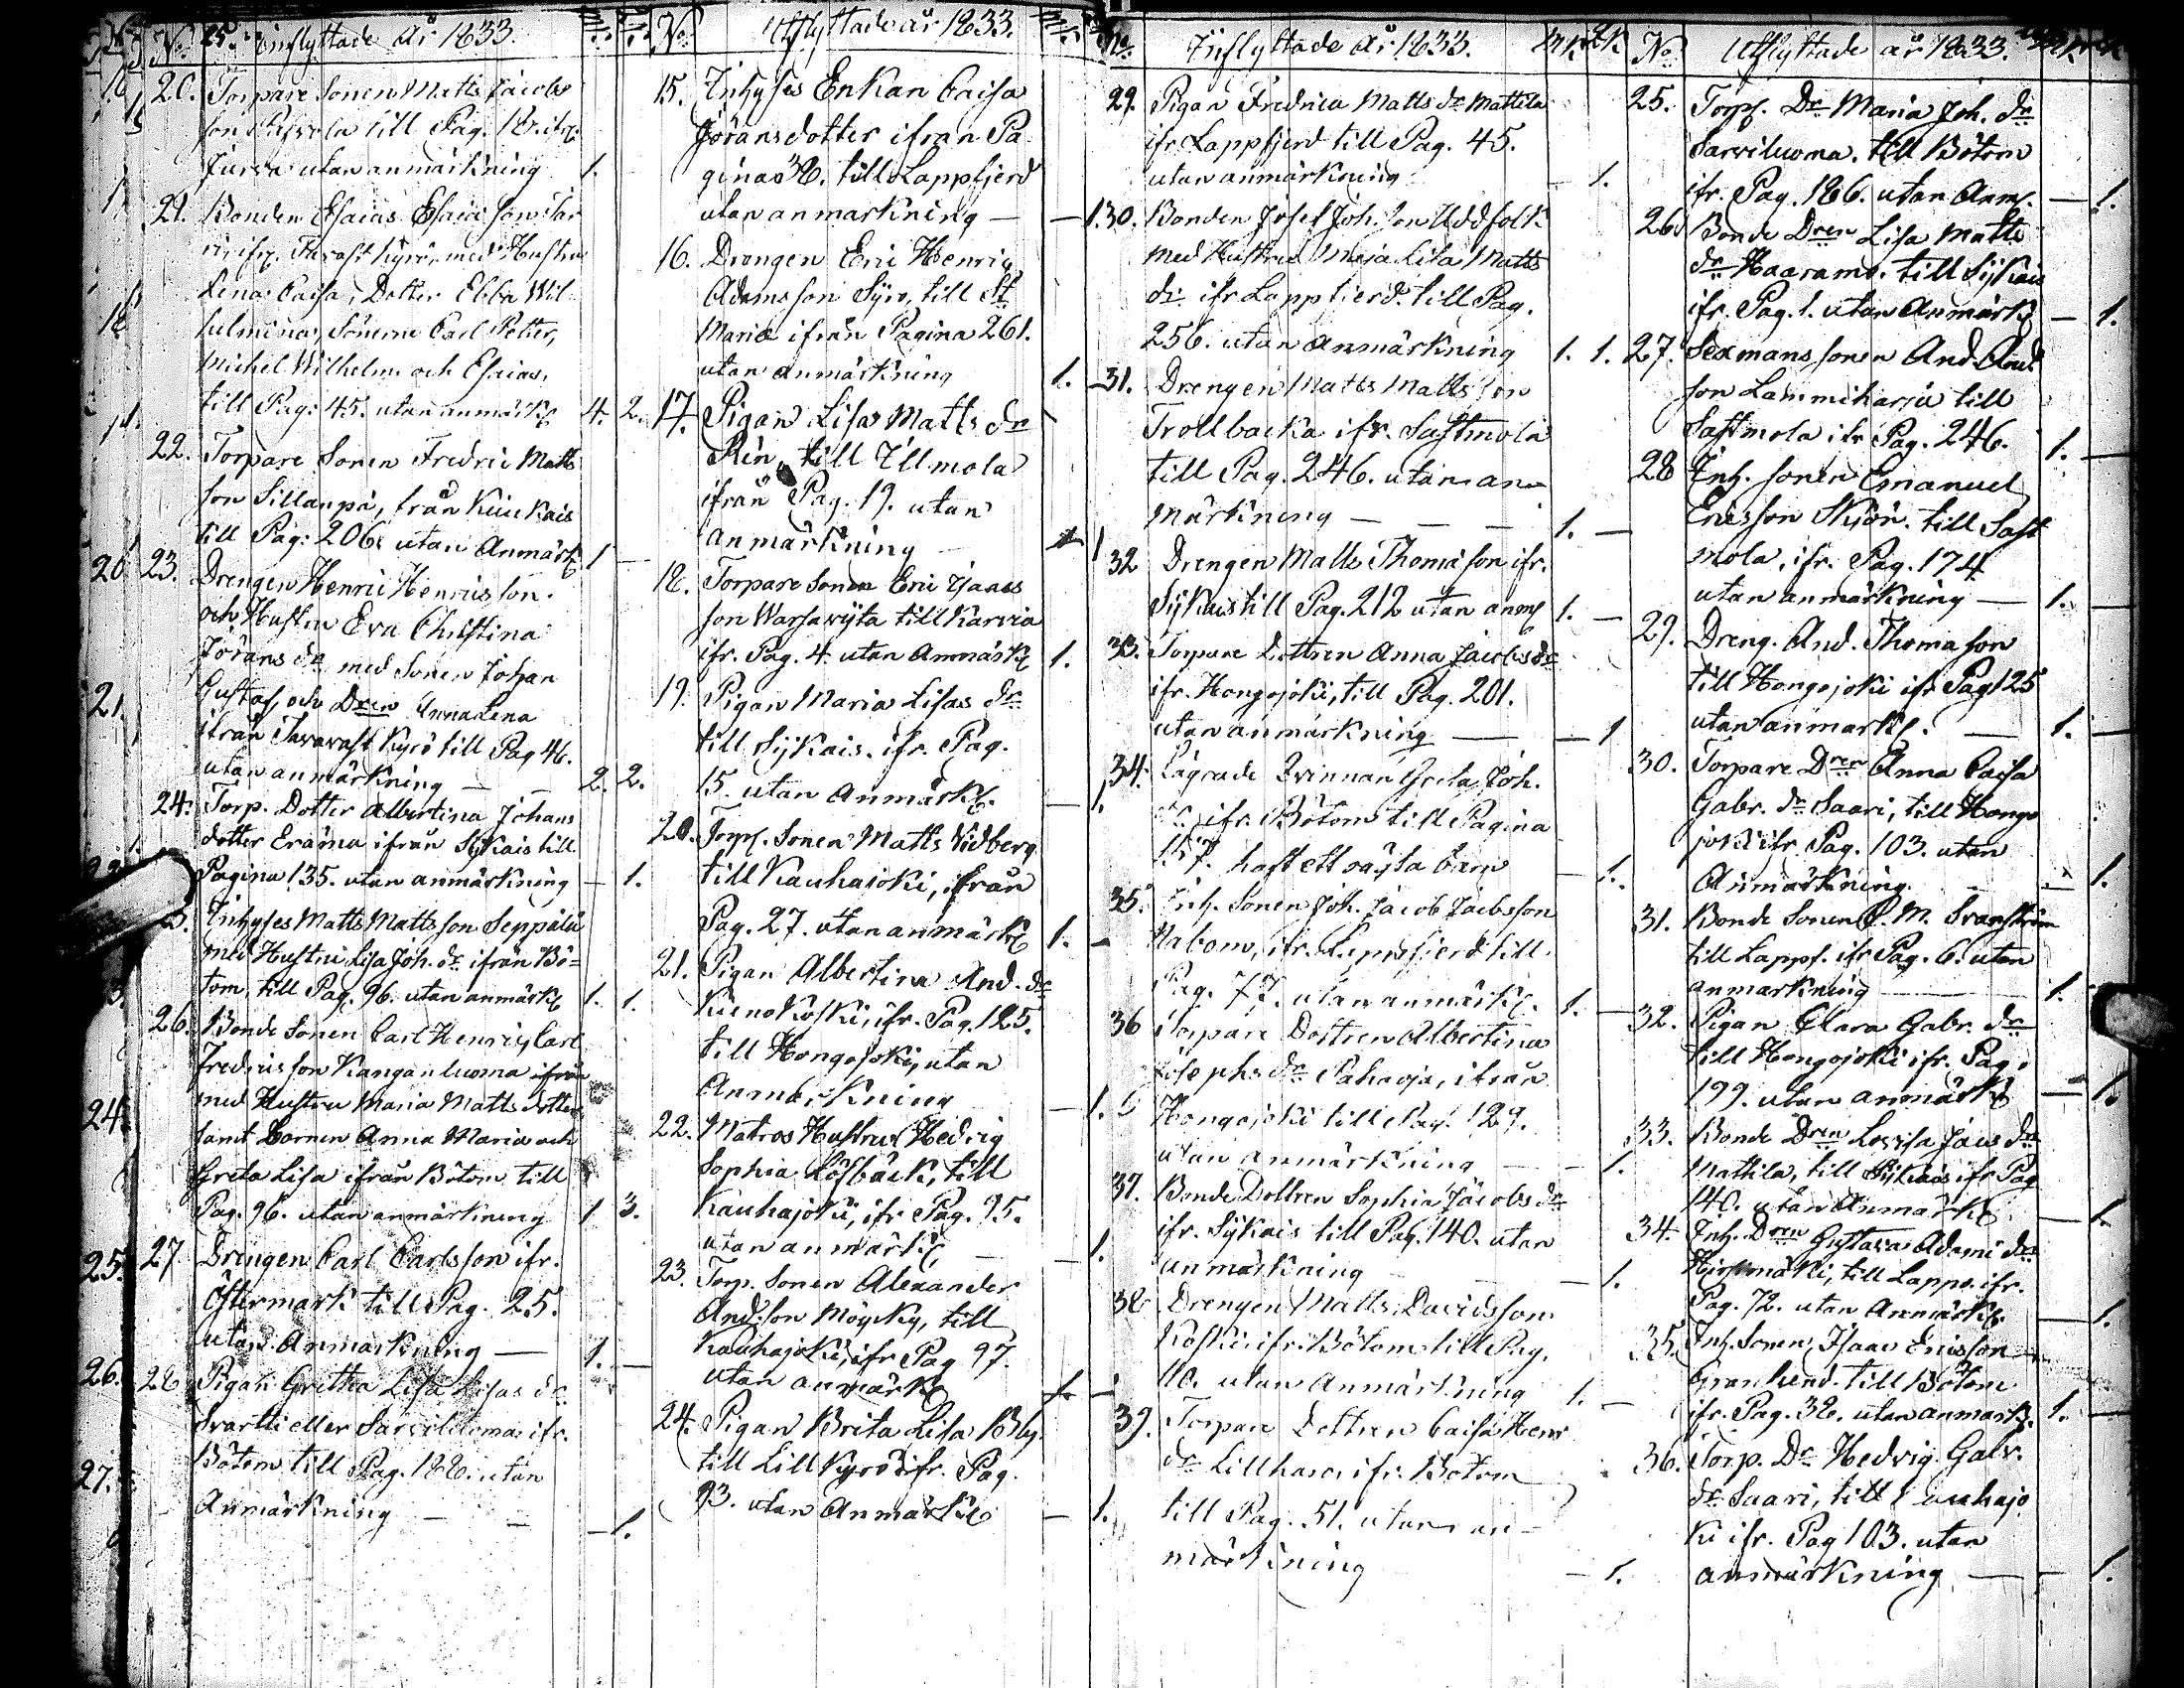 No. Inflyttade År 1833. Mk. Qk.
20. Torpare Sonen Matts Jacobs
son Passola till Pag. 18. ifr.
Jurva utan anmärkning 1.
21. Bonden Esaias Esaiæ son
ifr. Tavast Kyrö, med Hustru
Lena Caisa, Dotter Ebba Wil
helmina, Sönerne Carl Petter,
Michel Wilhelm och Esaias,
till Pag. 45. utan anmärk 4. 2.
22. Torpare Sonen Fredric Matts
son Sillanpä, från Kuickais
till Pag: 206. utan Anmärk 1 —
23. Drengen Henric Henricsson
och Hustru Eva Christina
Jörans dr med Sonen Johan
Gustaf, och Dren Anna Lena
ifrån Tavavast Kyrö till Pag 46.
utan anmärkning — 2. 2.
24. Torp. Dotter Albertina Johans
dotter Eräma ifrån Sykais till
Pagina 135. utan anmärkning — 1.
Inhyses Matts Mattsson Seppälä
med Hustru Lisa Joh. dr ifrån Bö=
tom, till Pag. 96. utan anmärk 1. 1.
26. Bonde Sonen Carl Henric Carl
Fredricsson Kanganluoma ifrån
med Hustru Maria Matts dotter
samt Barnen Anna Maria och
Greta Lisa ifrån Bötom till
Pag. 96. utan anmärkning 1 3.
27. Drengen Carl Carlsson ifr.
Östermark till Pag. 25.
utan Anmärkning — 1. —
28 Pigan Gretha Lisa Lisas dr
Svartti eller Sarviluoma ifr.
Bötom till Pag. 188. utan
Anmärkning — — — 1.
No Utflyttade år 1833.
15. Inhyses Enkan Caisa
Jöransdotter ifrån Pa
gina 38. till Lappfjerd
utan anmärkning — — 1.
16. Drengen Eric Henric
Adamsson Syro, till St
Mariæ ifrån Pagina 261.
utan anmärkning 1. —
17. Pigan Lisa Matts dr
Rén, till Illmola
ifrån Pag. 19. utan
anmärkning — 1
18. Torpare Sonen Eric Isaacs
son Warsaryta till Karvia
ifr. Pag. 4. utan Anmärk 1.
19. Pigan Maria Lisas dr
till Sykais. ifr. Pag.
15. utan Anmärk. — 1.
20. Torp. Sonen Matts Vidberg
till Kauhajoki, ifrån
Pag. 27. utan anmärk 1. —
21. Pigan Albertina And. dr
Kuenokoski, ifr. Pag. 125.
till Hongojoki, utan
Anmärkning — 1.
22. Matros Hustrun Hedvig
Sophia Löfbäck, till
Kauhajoki, ifr. Pag. 95.
utan anmärk — 1.
23. Torp. Sonen Alexander
And.son Möycky, till
Kauhajoki, ifr Pag 97.
utan anmärk 1. —
24. Pigan Brita Lisa Bly
till Lill Kyrö ifr. Pag.
93. utan Anmärk — 1.
No. Inflyttade år 1833. Mk. Qk.
29. Pigan Fredrica Matts dr Mattila
ifr. Lappfjerd till Pag. 45.
utan anmärkning — 1.
30. Bonden Josef Joh. son Uddfolk
med Hustru Maja Lisa Matts
dr ifr Lappfjerd. till Pag.
256. utan anmärkning 1. 1.
31. Drengen Matts Matts son
Trollbacka ifr. Sastmola
till Pag. 246. utan an=
märkning — — — 1. —
32 Drengen Matts Thomasson ifr.
Sykais till Pag. 212 utan anm 1. —
33. Torpare Dottren Anna Jacobs dr
ifr. Hongojoki, till Pag. 201.
utan anmärkning — — 1
34. Lägrade Qvinnan Greta Joh.
dr ifr. Bötom till Pagina
157. haft ett oägta barn — 1.
35. Inh. Sonen Joh. Jacob Jacobsson
Nabom, ifr. Lappfjerd till
Pag. 77. utan anmärk. 1. —
36 Torpare Dottren Albertina
Josephs dr Pahaoja, ifrån
Hongojoki till Pag. 129.
utan anmärkning — — 1.
37. Bonde Dottren Sophia Jacobs dr
ifr. Sykais till Pag. 140. utan
anmärkning — 1.
38 Drengen Matts Davidsson
Koski ifr. Bötom till Pag.
110. utan Anmärkning 1. —
39. Torpare Dottren Caisa Henr
dr Lillharo, ifr. Bötom
till Pag. 51. utan an=
märkning — 1.
No Utflyttade år 1833.
25. Torp. Dr Maria Joh. dr
Sarviluoma. till Bötom
ifr. Pag. 186. utan Anm. — 1.
26. Bonde Dren Lisa Matts
dr Haarama. till Sykais
ifr. Pag. 1. utan Anmärk — 1.
27. Sexmans sonen And. And
son Lammiharju till
Sastmola ifr Pag. 246. 1. —
28 Inh. sonen Emanuel
Ericsson Skjön. till Sast
mola, ifr. Pag. 174
utan anmärkning — 1. —
29. Dreng. And. Thomasson
till Hongojoki ifr Pag 125
utan anmärk. — 1. —
30. Torpare Dren Anna Caisa
Gabr. dr Saari, till Hongo
joki ifr. Pag. 103. utan
Anmärkning. — 1.
31. Bonde Sonen C. M. Svanström
till Lappf. ifr Pag. 6. utan
anmärkning — 1.
32. Pigan Clara Gabr. dr
till Hongojoki ifr. Pag.
199. utan anmärk — 1.
33. Bonde Dren Lovisa Jacs dr
Mattila, till Sykais ifr Pag
140. utan Anmärk — 1.
34. Inh. Dren Gustava Adami dr
Hirsimäki, till Lappo. ifr.
Pag. 72. utan Anmärk. — 1.
35. Inh. Sonen, Isaac Ericsson
Granlund. till Bötom
ifr. Pag. 38. utan anmärk. 1. —
36. Torp. Dr Hedvig Gabr.
dr Saari, till Kauhajo
ki ifr. Pag 103. utan
anmärkning — — 1.